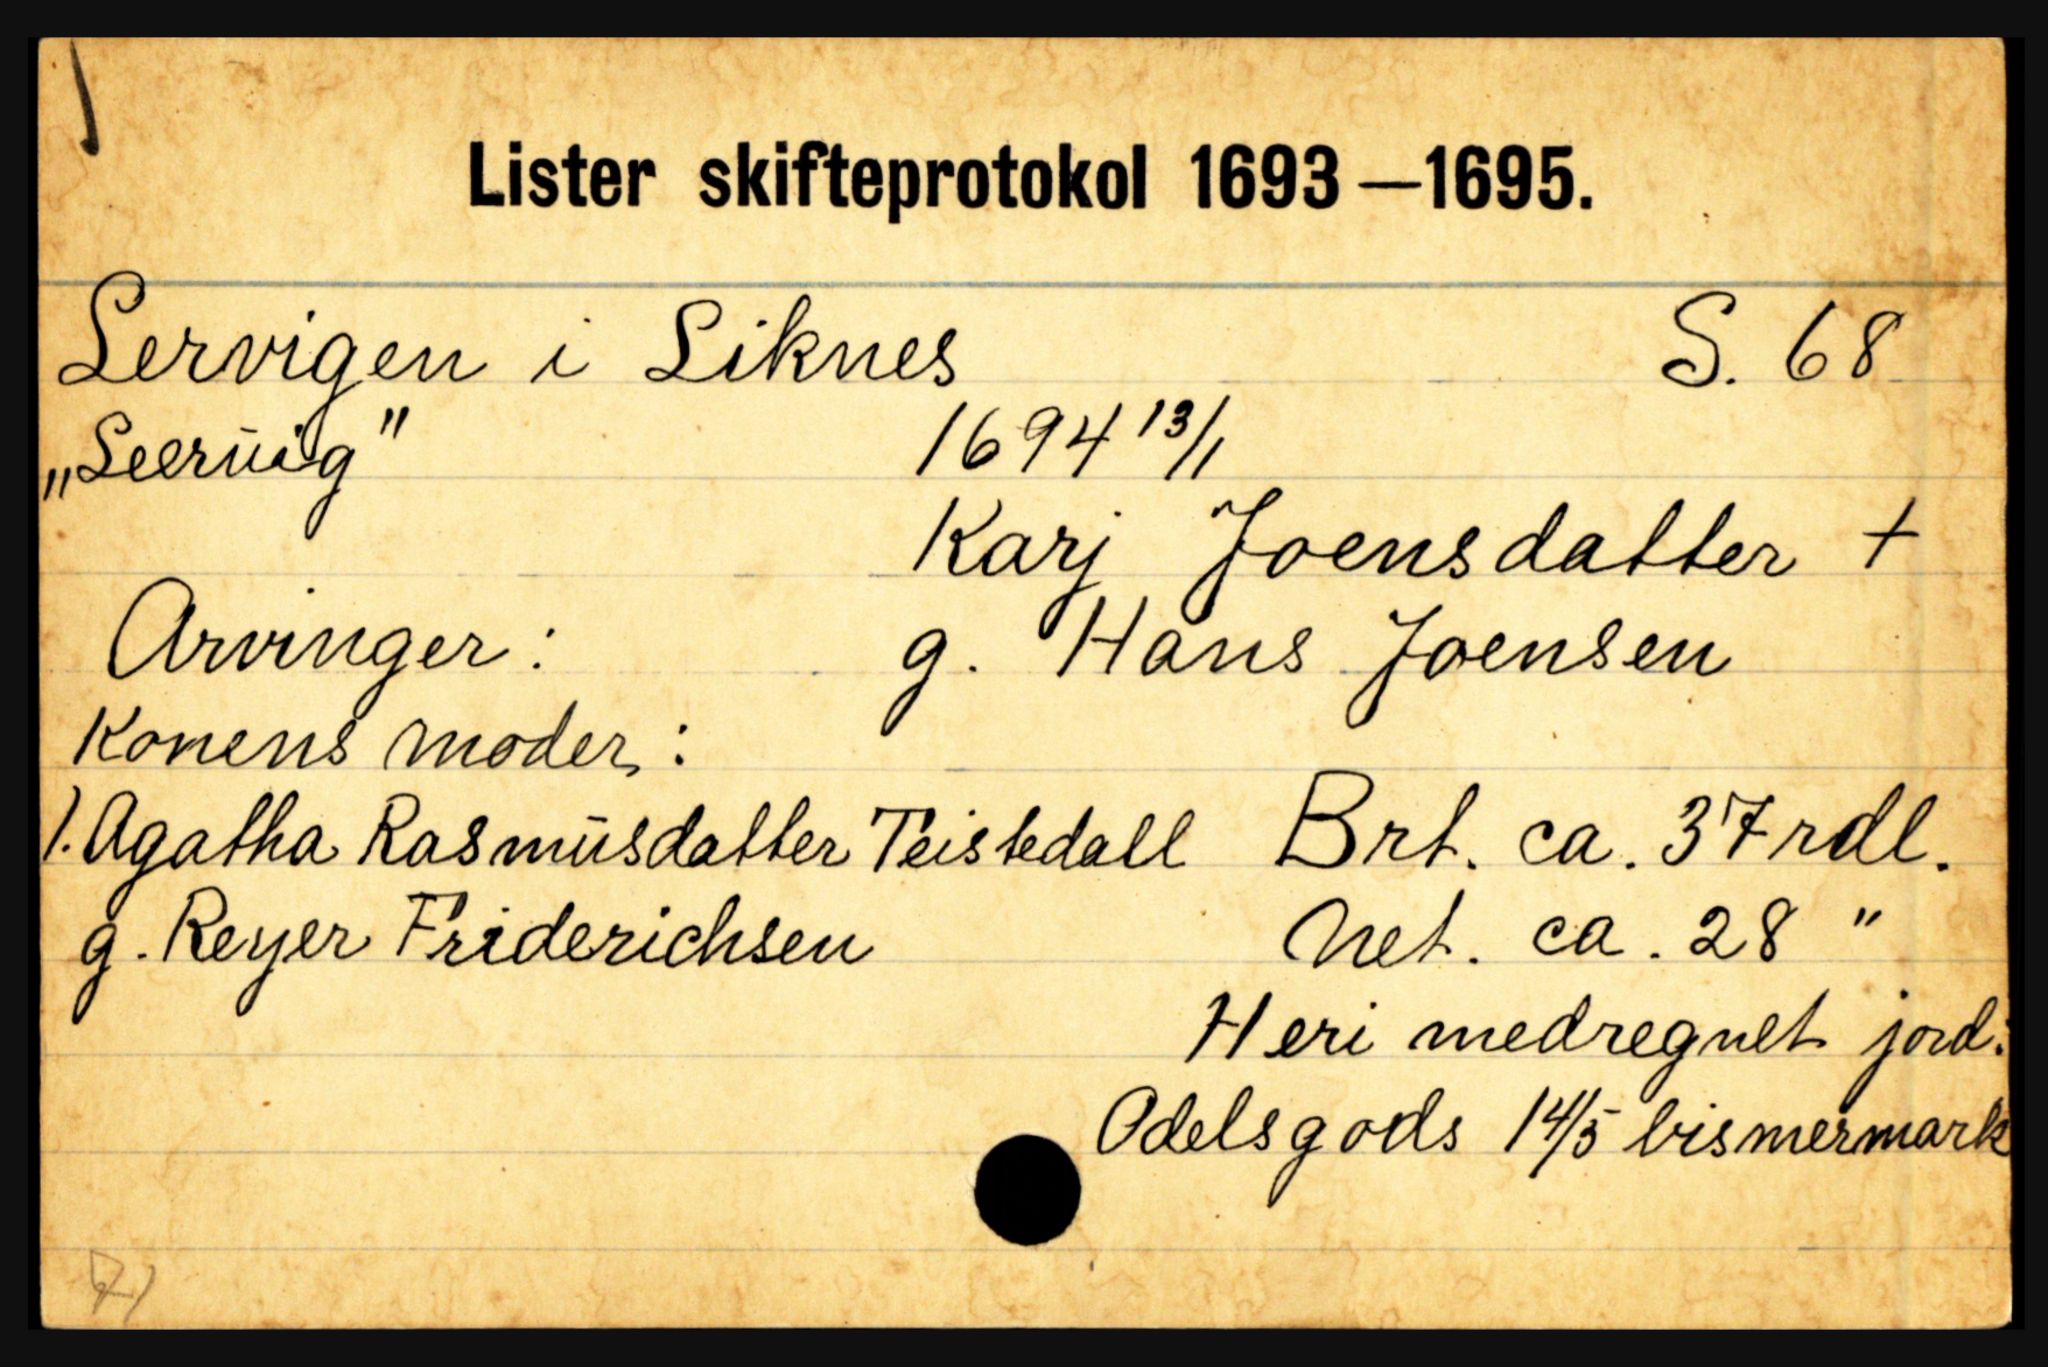 Lister skifteprotokol 1693—1695.
Lervigen i Liknes S. 68
„Leervig" 1694 13/1
Karj Joensdatter +
Arvinger: g. Hans Joensen
Konens moder:
1. Agatha Rasmusdatter Teistedall Brt. ca. 37 rdl.
g. Reyer Friderichsen Net. ca. 28 "
Heri medregnet jord:
Odelsgods 14/5 bismermark